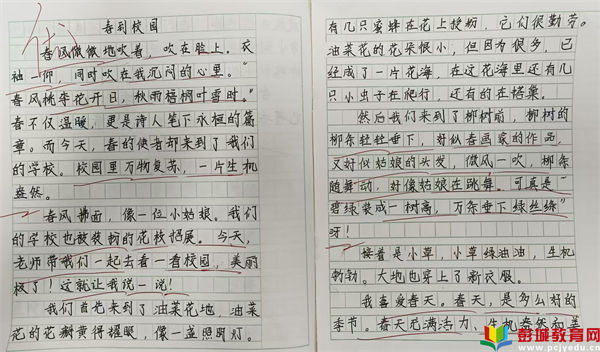 优
春到校园
春风微微地吹着，吹在脸上。衣
袖一仰，同时吹在我沉闷的心里。“
春风桃李花开日，秋雨梧桐叶雪时。”
春不仅温暖，更是诗人笔下永恒的篇
章。而今天，春的使者都来到了我们
的学校。校园里万物复苏，一片生机
盎然。
春风拂面，像一位小姑娘。我们
的学校也被装扮的花枝招展。今天，
老师带我们一起去看一看校园，美丽
极了！这就让我说一说！
我们首先来到了油菜花地，油菜
花的花瓣黄得耀眼，像一盏照明灯。
有几只蜜蜂在花上授粉，它们很勤劳。
油菜花的花朵很小，但因为很多，已
经成了一片花海，在这花海里还有几
只小虫子在爬行，还有的在搭巢。
然后我们来到了柳树前，柳树的
柳条轻轻垂下，好似春画家的作品，
又好似姑娘的头发，微风一吹，柳条
随舞动，好像姑娘在跳舞。可真是“
碧绿装成一树高，万条垂下绿丝绦”
呀！
接着是小草，小草绿油油，生机
勃勃。大地也穿上了新衣服。
我喜爱春天。春天，是多么好的
季节。春天充满活力、生机盎然和美
彭城教育网
www.pcjyedu.cn